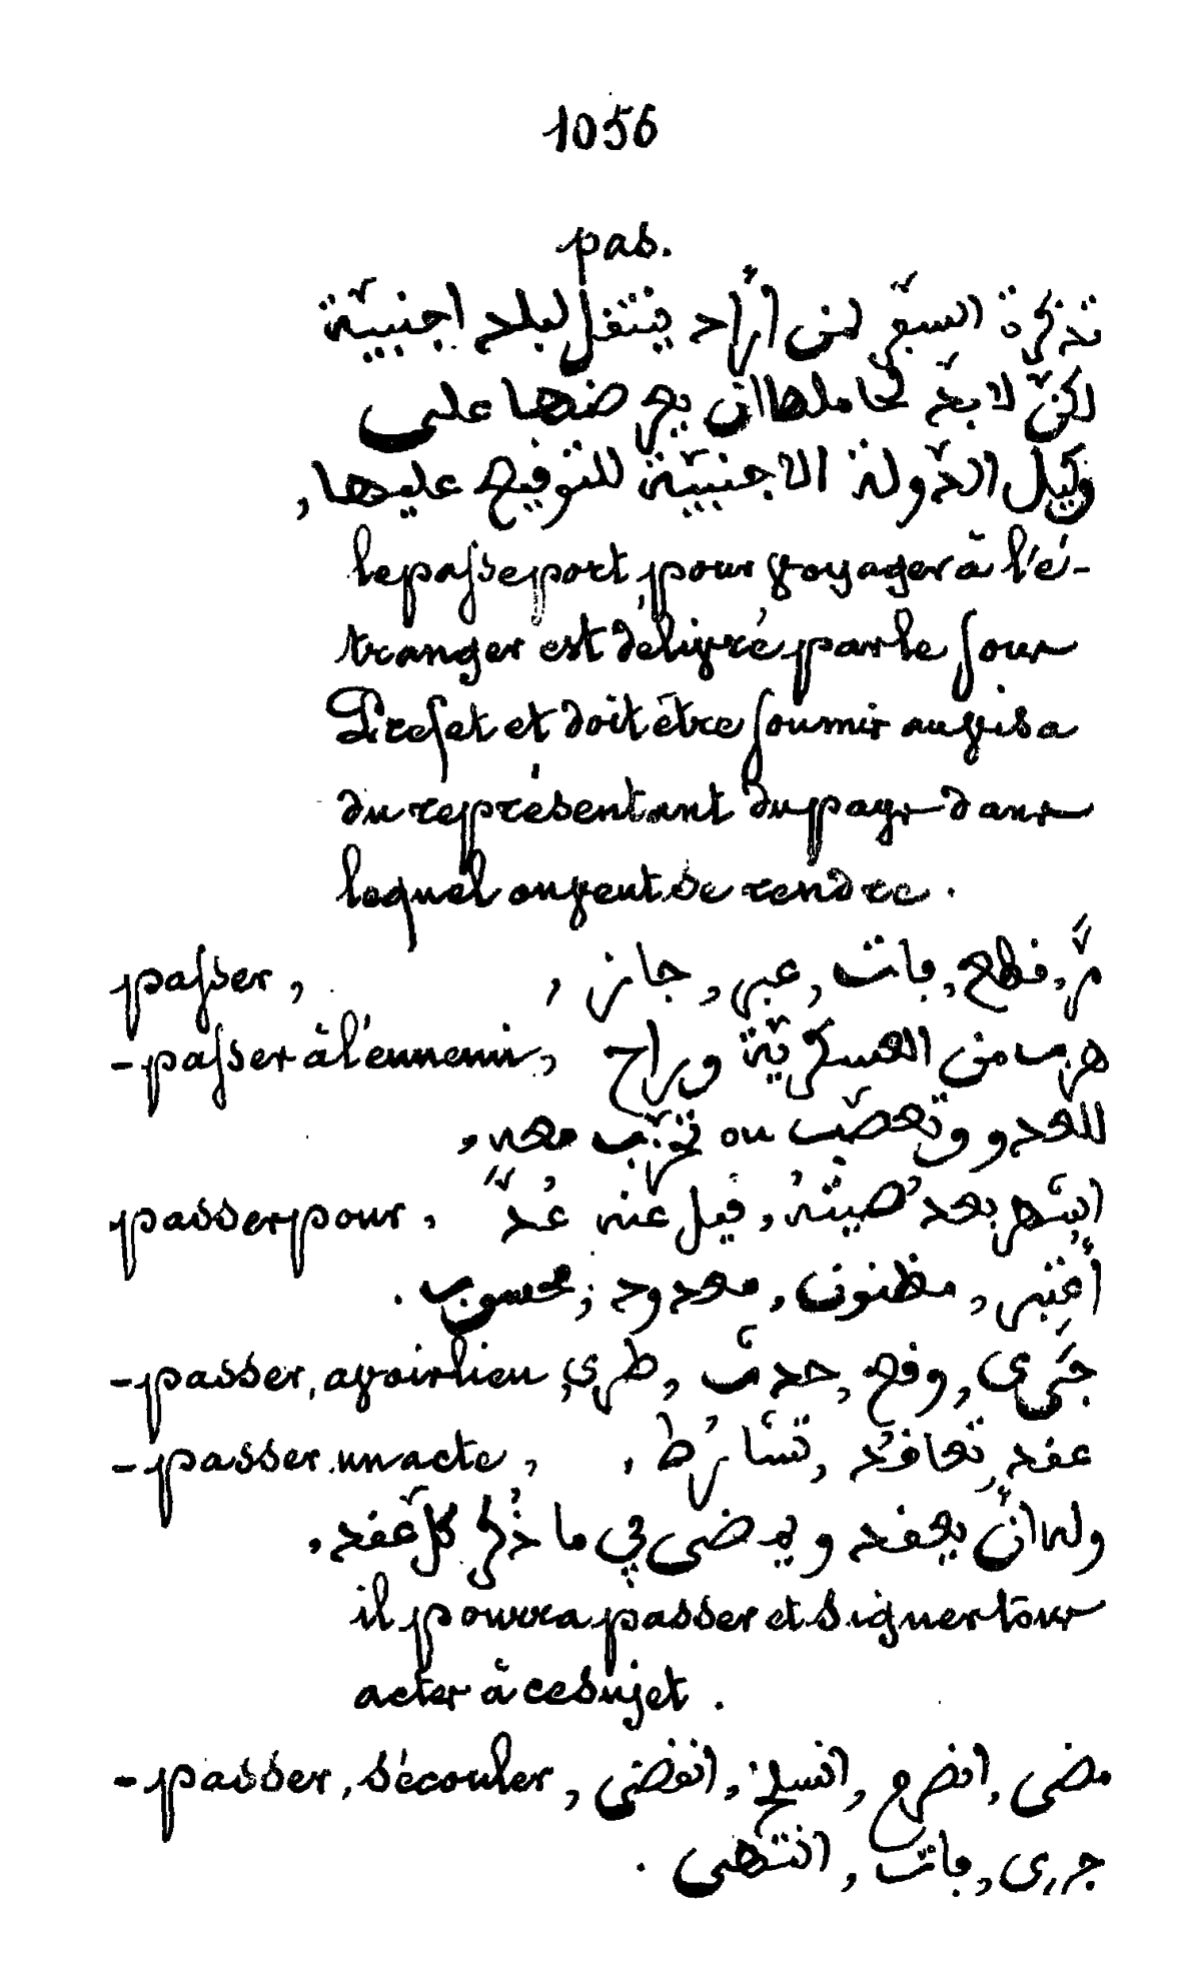 1056
pas.
تذكرة السفر لمن أراد ينتقل لبلد اجنبيّة
لكنّ لا بدّ لحاملها ان يعرضها على
وكيل الدّولة الاجنبيّة للتوقيع عليها,
le passeport, pour voyager à l'é-
tranger est délivré par le Sous
Préfet et doit être soumis au visa
du représentant du pays dans
lequel on veut se rendre.
passer, مرّ, قطع, فات, عبر, جاز,
- passer à l'ennemi, هرب من العسكريّة وراح
للعدو وتعصّب ou تحزّب معه,
passer pour, اشتهر بعد صيتهُ, قيل عنه عُدّ
أعتبر, مظنون, معدود, محسوب.
- passer, avoir lieu, جَرى, وقع, حدث, طرى
- passer un acte, عقد, تعاقد, تشارُط,
وله انّ يعقد ويمضي في ما ذُكر كلّ عقد,
il pourra passer et signer tous
actes à ce sujet.
- passer, s'écouler, مضى, انصرم, انسلخ, انقضى,
جرى, فات, انتهى.